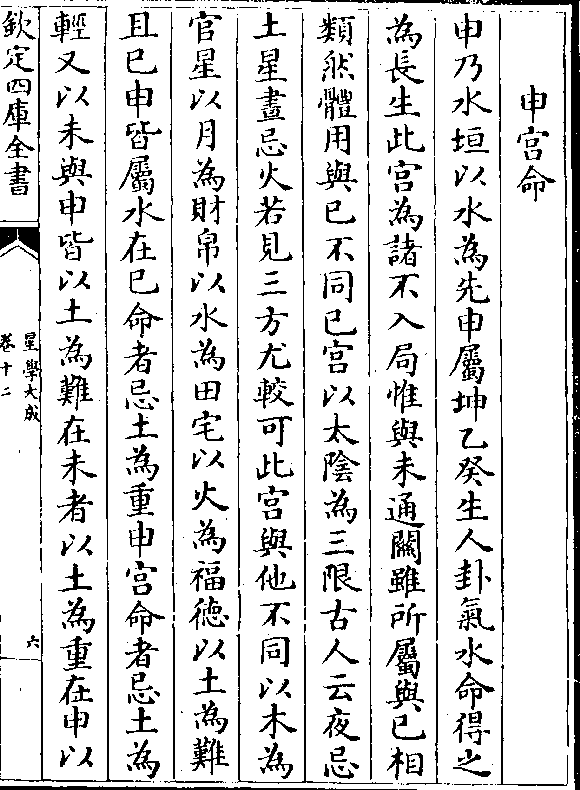 申宫命
申乃水垣以水為先申屬坤乙癸生人卦氣水命得之
為長生此宫為諸不入局惟與未通關雖所屬與巳相
類然體用與巳不同巳宫以太陰為三限古人云夜忌
土星晝忌火若見三方尤較可此宫與他不同以木為
官星以月為財帛以水為田宅以火為福德以土為難
且巳申皆屬水在巳命者忌土為重申宫命者忌土為
輕又以未與申皆以土為難在未者以土為重在申以
欽定四庫全書
星學大成
卷十二
六